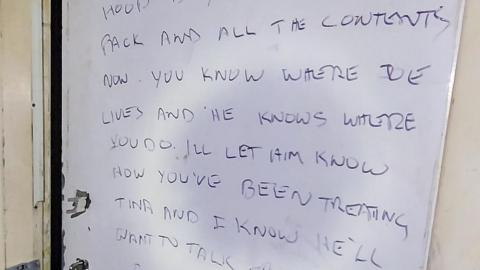 HOOD
PACK AND ALL THE CONTENTS
NOW. YOU KNOW WHERE DE
LIVES AND HE KNOWS WHERE
YOU DO. I'LL LET HIM KNOW
HOW YOU'VE BEEN TREATING
TINA AND I KNOW HE'LL
WANT TO TALK